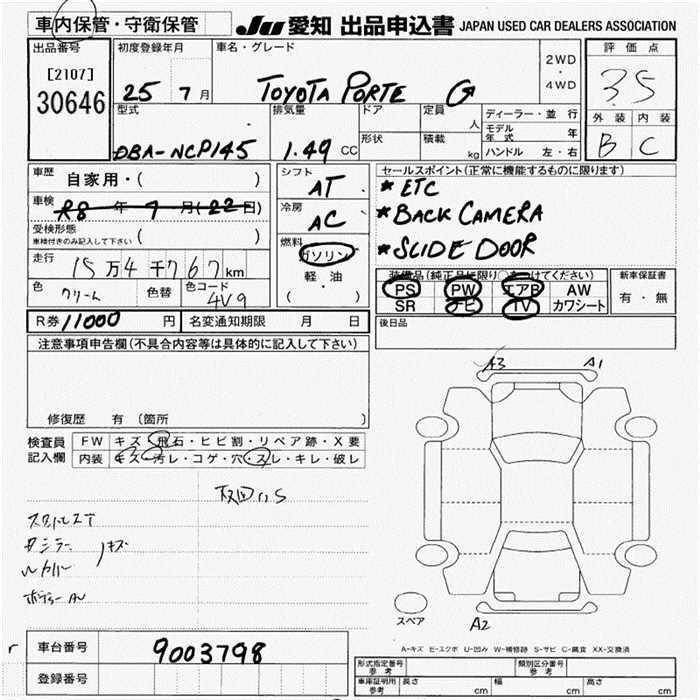 車内保管・守衛保管
JU 愛知 出品申込書 JAPAN USED CAR DEALERS ASSOCIATION
出品番号
[2107]
30646
初度登録年月
25 7月
車名・グレード
TOYOTA PORTE G
2WD
・
4WD
評価点
3.5
外装 内装
B C
型式
DBA-NCP145
排気量
1.49 CC
ドア
形状
定員
人
積載
kg
ディーラー・並行
モデル年式 年
ハンドル 左・右
車歴 自家用・( )
車検 R8 年 7 月(22日)
受検形態
車検付きのみ記入して下さい ( )
走行 15万4千767km
色 クリーム 色替 色コード 4V9
シフト AT
冷房 AC
燃料 ガソリン
軽・油
( ・ )
セールスポイント(正常に機能するものに限ります)
* ETC
* BACK CAMERA
* SLIDE DOOR
装備品(純正品に限り○をつけてください)
PS PW エアB AW
SR ナビ TV カワシート
新車保証書
有・無
R券 11000 円 名変通知期限 月 日
後日品
注意事項申告欄(不具合内容等は具体的に記入して下さい)
修復歴 有 (箇所 )
検査員記入欄
FW キズ・飛石・ヒビ割・リペア跡・X要
内装 キズ・汚レ・コゲ・穴・スレ・キレ・破レ
A3 A1
A2
スペア
A-キズ E-エクボ U-凹み W-補修跡 S-サビ C-腐食 XX-交換済
車台番号 9003798
登録番号
型式指定番号 参考
類別区分番号 参考
車庫証明用 参考 長さ cm 幅 cm 高さ cm